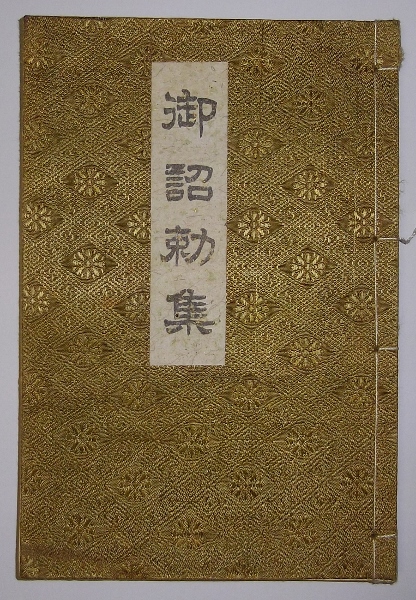 御詔勅集